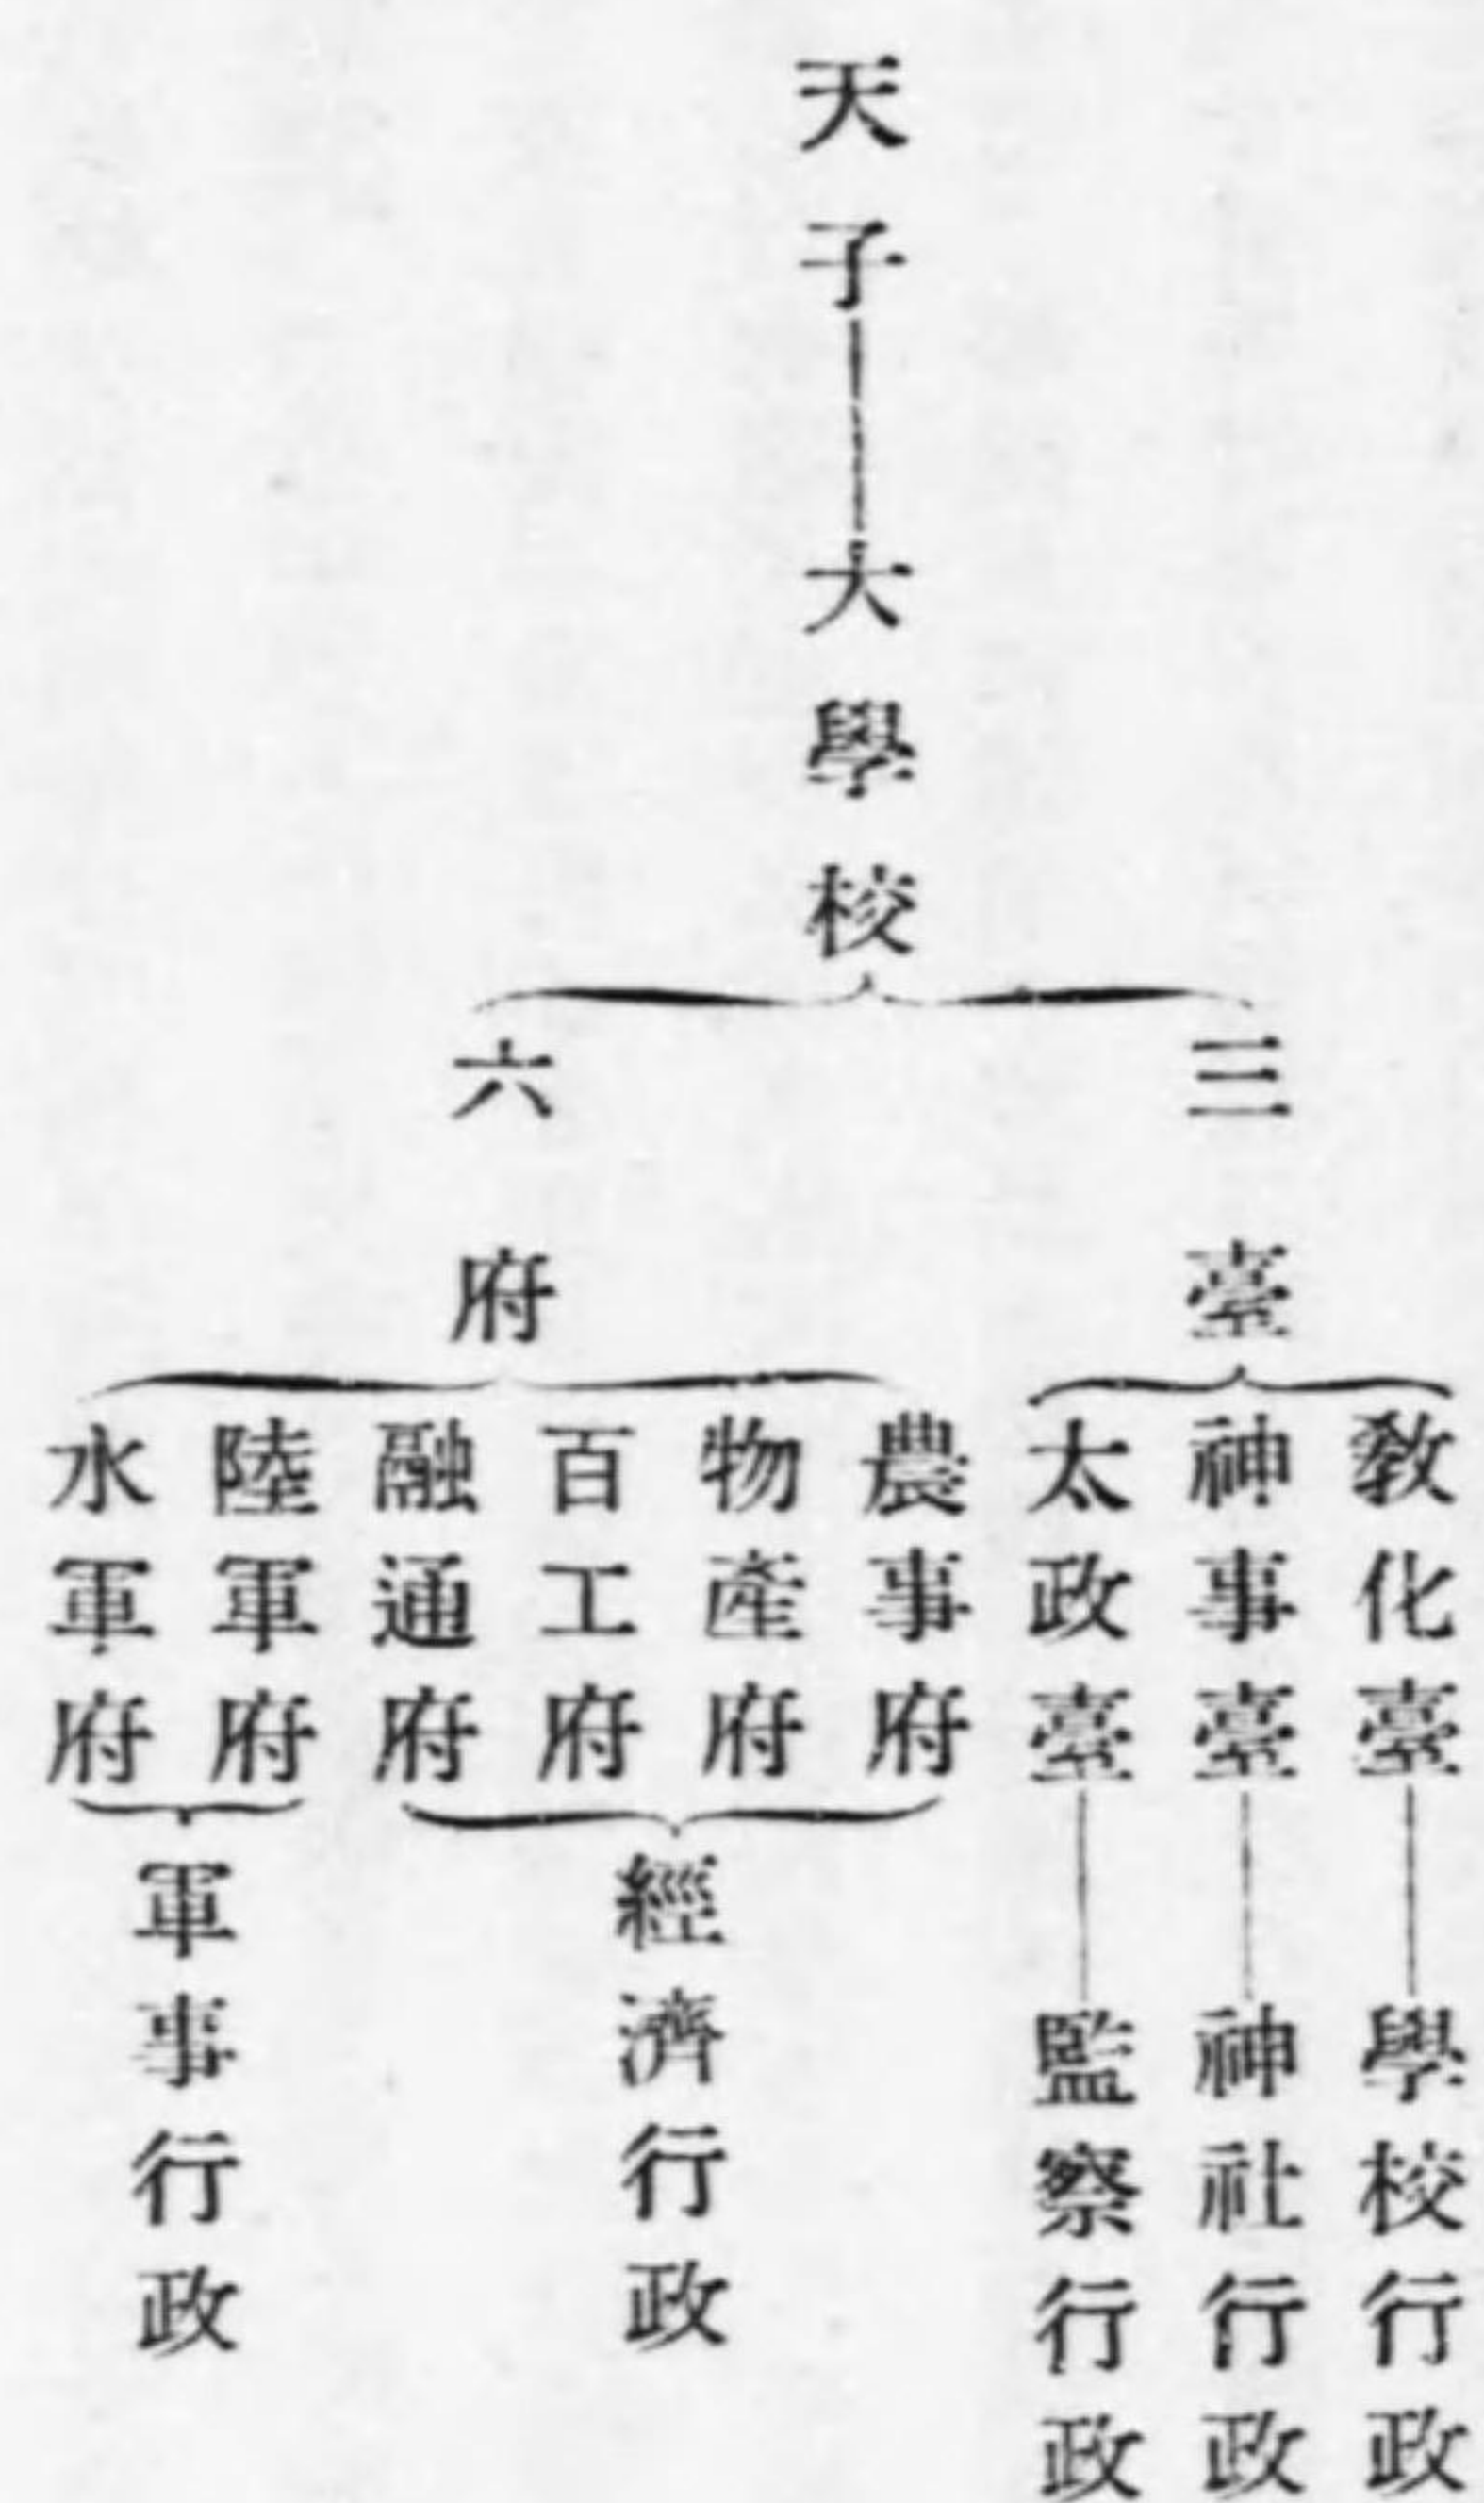 天子
大學校
三臺
敎化臺
學校行政
神事臺
神社行政
太政臺
監察行政
六府
農事府
物產府
百工府
融通府
經濟行政
陸軍府
水軍府
軍事行政